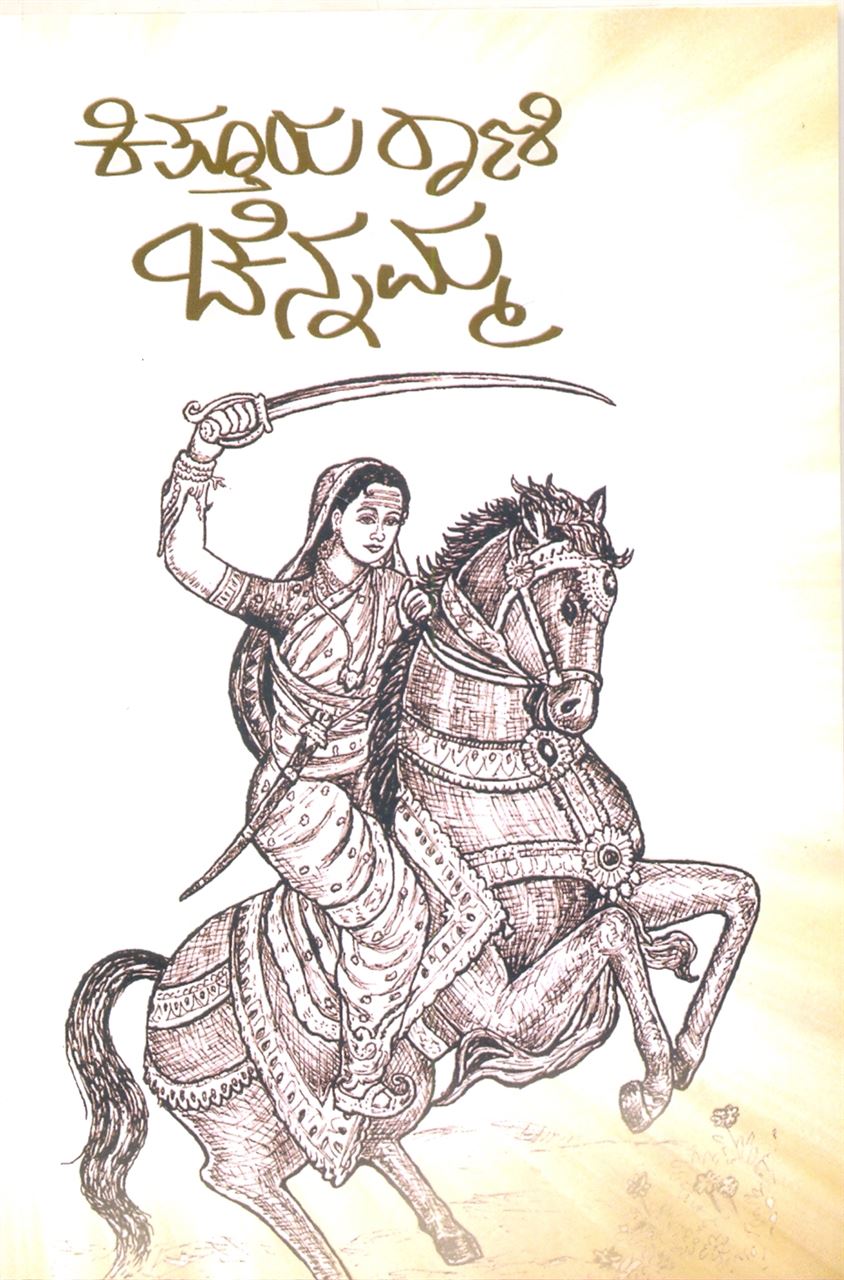 ಕಿತ್ತೂರು ರಾಣಿ
ಚೆನ್ನಮ್ಮ